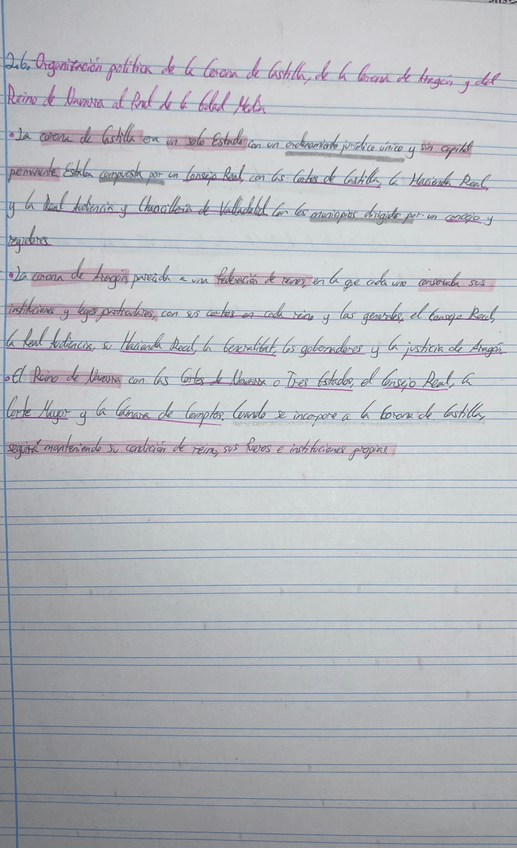 2.6. Organización política de la Corona de Castilla, de la Corona de Aragón y del
Reino de Navarra al final de la Edad Media
• La corona de Castilla era un solo Estado con un ordenamiento jurídico único y sin capital
permanente. Estaba compuesta por un Consejo Real, con las Cortes de Castilla, la Hacienda Real,
y la Real Audiencia y Chancillería de Valladolid con los municipios dirigido por un concejo y
regidores.
• La corona de Aragón parecida a una federación de reinos, en la que cada uno conservaba sus
instituciones y leyes particulares, con sus cortes en cada reino y las generales, el Consejo Real,
la Real Audiencia, su Hacienda Real, la Generalitat, los gobernadores y la justicia de Aragón.
• El Reino de Navarra con las Cortes de Navarra o Tres Estados, el Consejo Real, la
Corte Mayor y la Cámara de Comptos. Cuando se incopore a la Corona de Castilla,
seguirá manteniendo su condición de reino, sus fueros e instituciones propias.